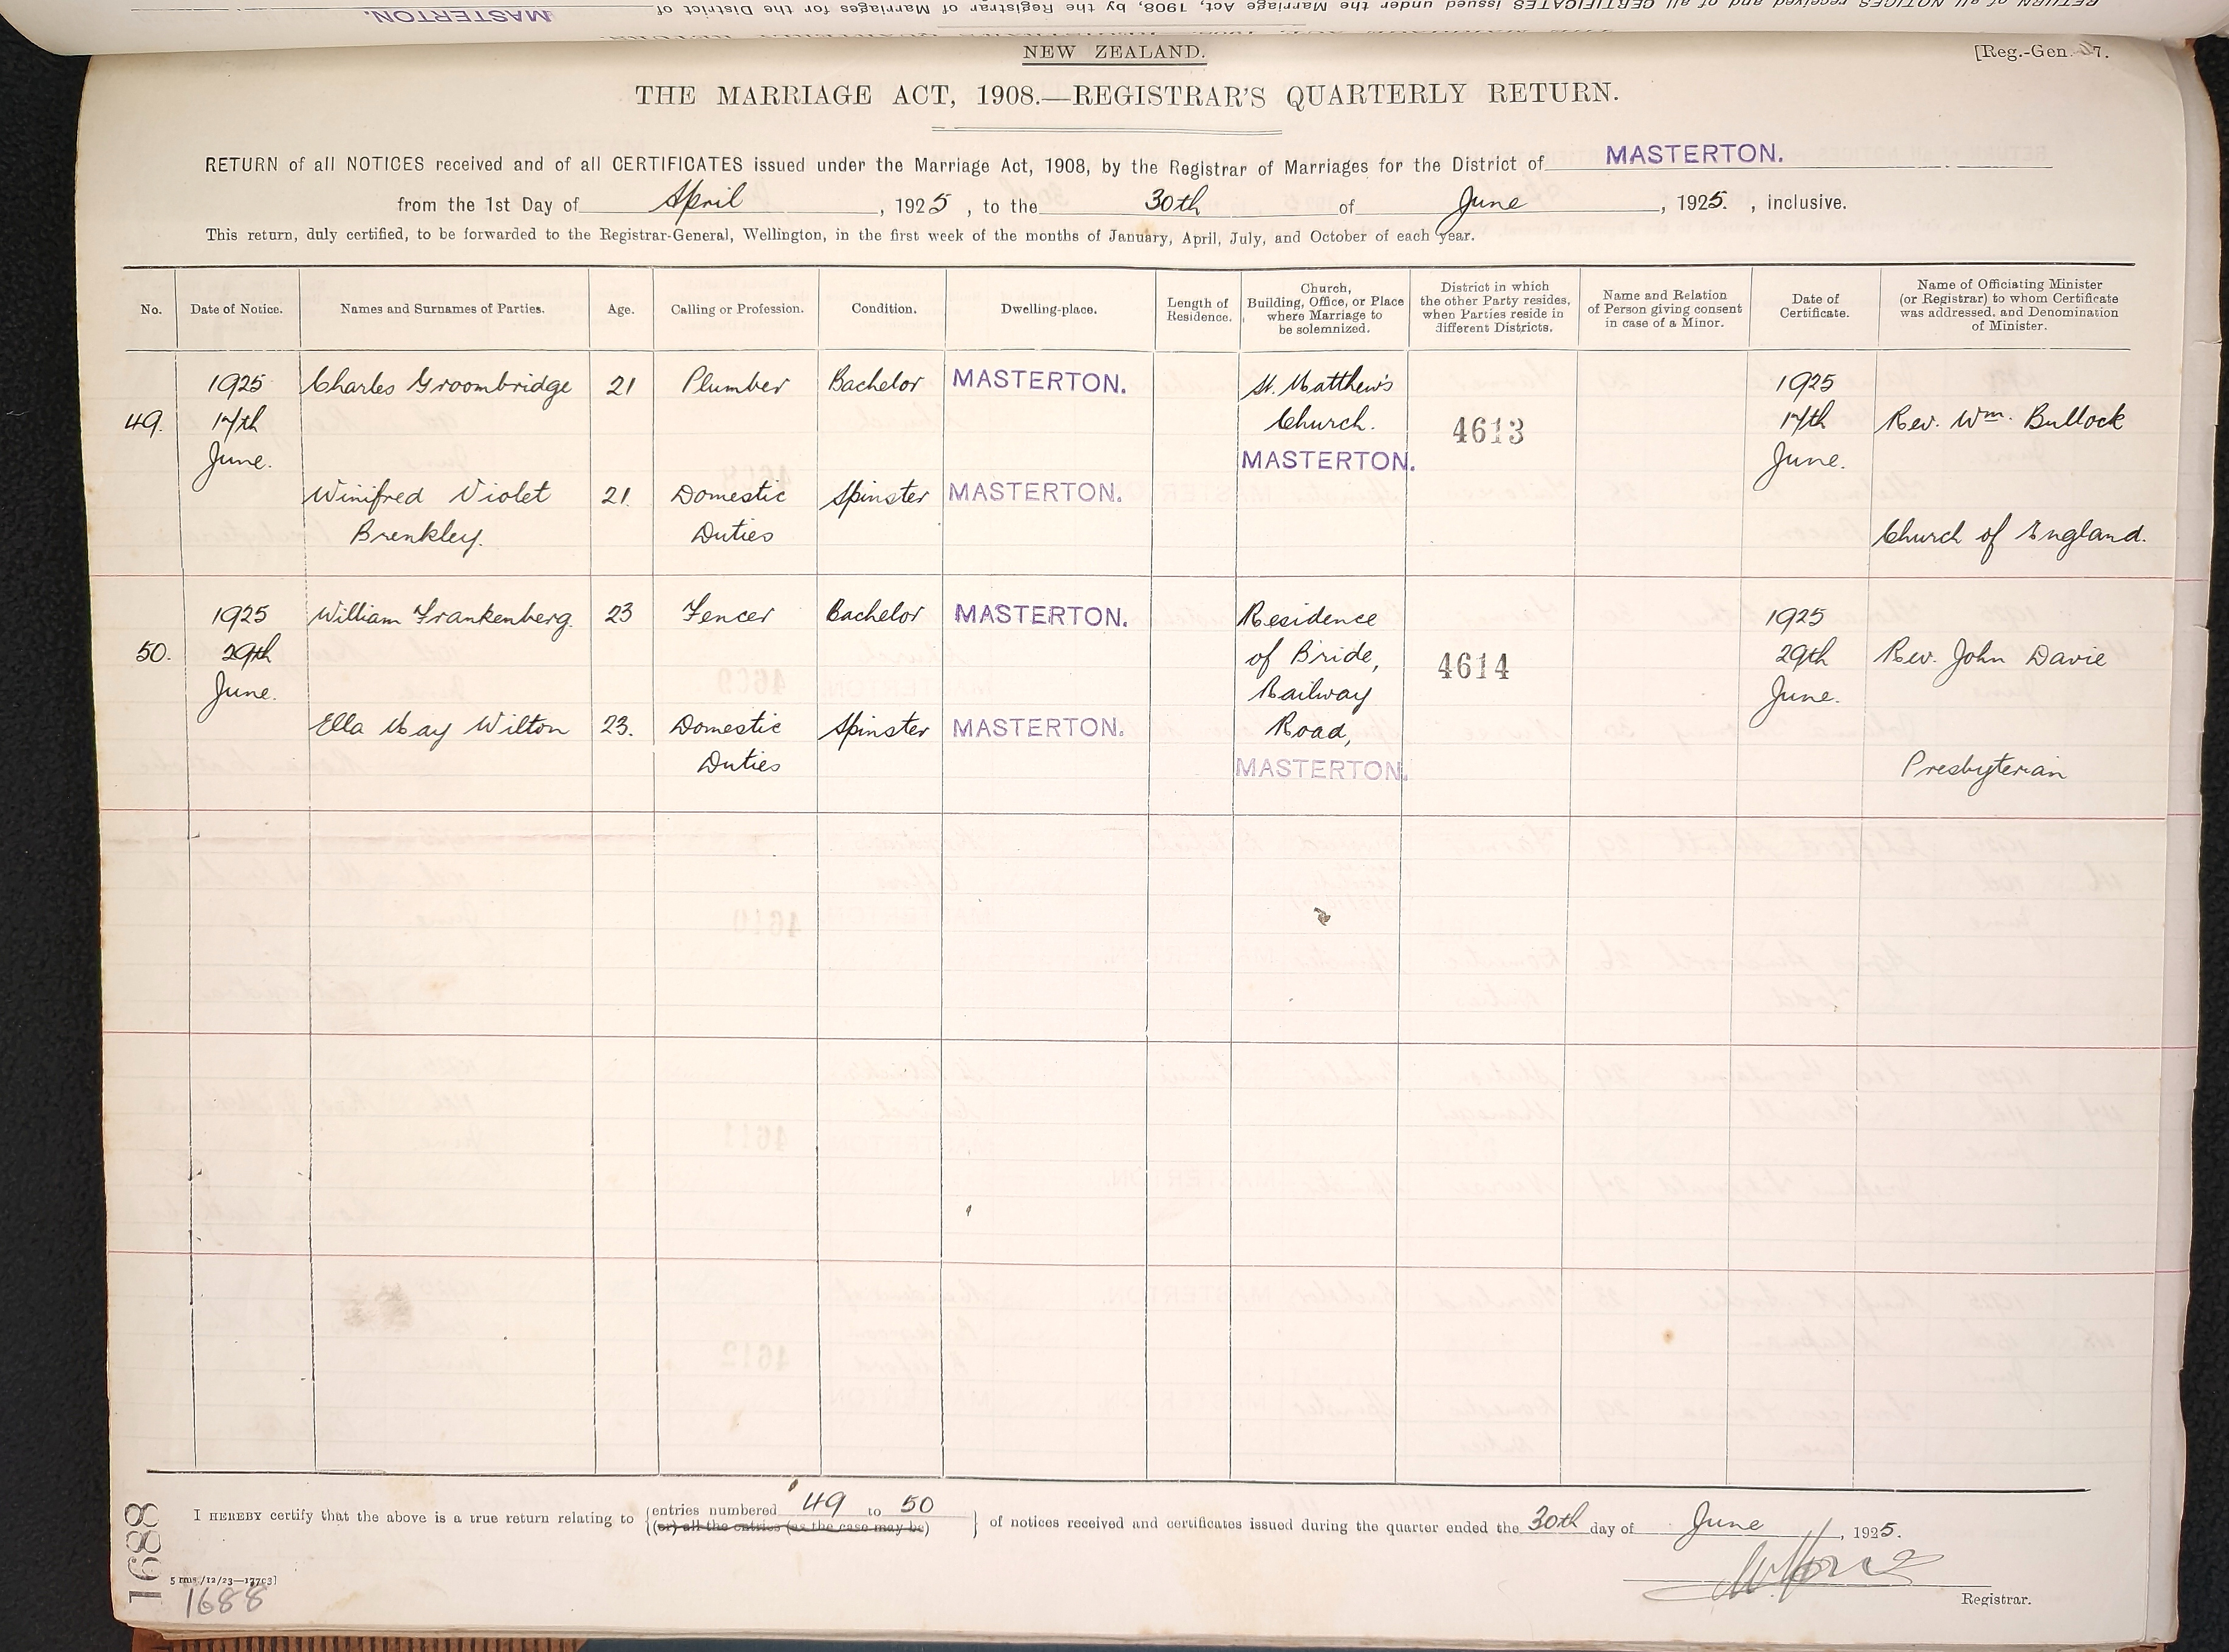 MASTERTON.
RETURN of all NOTICES received and of all CERTIFICATES issued under the Marriage Act, 1908, by the Registrar of Marriages for the District of
NEW ZEALAND.
[Reg.-Gen. 7.
THE MARRIAGE ACT, 1908.—REGISTRAR'S QUARTERLY RETURN.
RETURN of all NOTICES received and of all CERTIFICATES issued under the Marriage Act, 1908, by the Registrar of Marriages for the District of MASTERTON.
from the 1st Day of April, 1925, to the 30th of June, 1925., inclusive.
This return, duly certified, to be forwarded to the Registrar-General, Wellington, in the first week of the months of January, April, July, and October of each year.
No.
Date of Notice.
Names and Surnames of Parties.
Age.
Calling or Profession.
Condition.
Dwelling-place.
Length of
Residence.
Church,
Building, Office, or Place
where Marriage to
be solemnized.
District in which
the other Party resides,
when Parties reside in
different Districts.
Name and Relation
of Person giving consent
in case of a Minor.
Date of
Certificate.
Name of Officiating Minister
(or Registrar) to whom Certificate
was addressed, and Denomination
of Minister.
49.
1925
17th
June.
Charles Groombridge
21
Plumber
Bachelor
MASTERTON.
Winifred Violet
Brenkley.
21.
Domestic
Duties
Spinster
MASTERTON.
St. Matthew's
Church.
MASTERTON.
4613
1925
17th
June.
Rev. Wm. Bullock
Church of England.
50.
1925
29th
June.
William Frankenberg.
23
Fencer
Bachelor
MASTERTON.
Ella May Wilton
23.
Domestic
Duties
Spinster
MASTERTON.
Residence
of Bride,
Railway
Road,
MASTERTON.
4614
1925
29th
June.
Rev. John Davie
Presbyterian
I HEREBY certify that the above is a true return relating to
entries numbered 49 to 50
(or) all the entries (as the case may be)
of notices received and certificates issued during the quarter ended the 30th day of June, 1925.
Registrar.
1688
1688